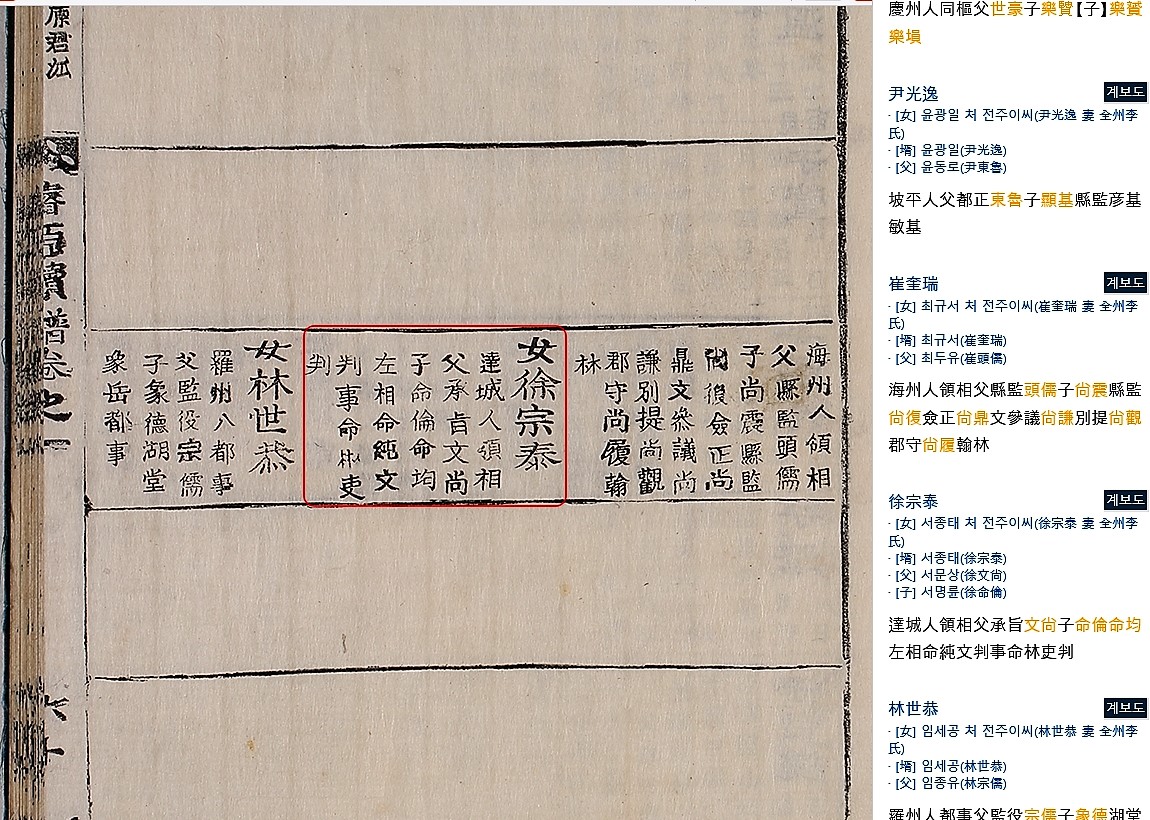 原君江
睿宗續譜卷之一
六十
海州人領相
父縣監頭儒
子尚震縣監
尚復僉正尚
鼎文參議尚
謙別提尚觀
郡守尚履翰
林
女徐宗泰
達城人領相
父承旨文尚
子命倫命均
左相命純文
判事命林吏
判
女林世恭
羅州人都事
父監役宗儒
子象德湖堂
象岳都事
慶州人同樞父世豪子樂贊【子】樂賛
樂塤
尹光逸 계보도
· [女] 윤광일 처 전주이씨(尹光逸 妻 全州李
氏)
· [壻] 윤광일(尹光逸)
· [父] 윤동로(尹東魯)
坡平人父都正東魯子顯基縣監彦基
敏基
崔奎瑞 계보도
· [女] 최규서 처 전주이씨(崔奎瑞 妻 全州李
氏)
· [壻] 최규서(崔奎瑞)
· [父] 최두유(崔頭儒)
海州人領相父縣監頭儒子尙震縣監
尙復僉正尙鼎文參議尙謙別提尙觀
郡守尙履翰林
徐宗泰 계보도
· [女] 서종태 처 전주이씨(徐宗泰 妻 全州李
氏)
· [壻] 서종태(徐宗泰)
· [父] 서문상(徐文尙)
· [子] 서명륜(徐命倫)
達城人領相父承旨文尙子命倫命均
左相命純文判事命林吏判
林世恭 계보도
· [女] 임세공 처 전주이씨(林世恭 妻 全州李
氏)
· [壻] 임세공(林世恭)
· [父] 임종유(林宗儒)
羅州人都事父監役宗儒子象德湖堂